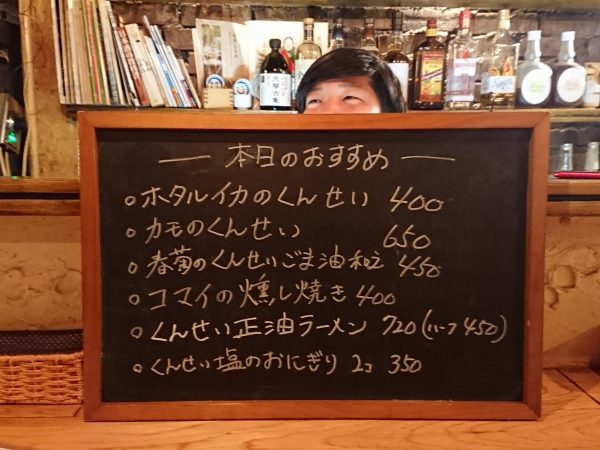 本日のおすすめ
ホタルイカのくんせい 400
カモのくんせい 650
春菊のくんせいごま油和え 450
コマイの燻し焼き 400
くんせい正油ラーメン 720 (ハーフ 450)
くんせい塩のおにぎり 2コ 350